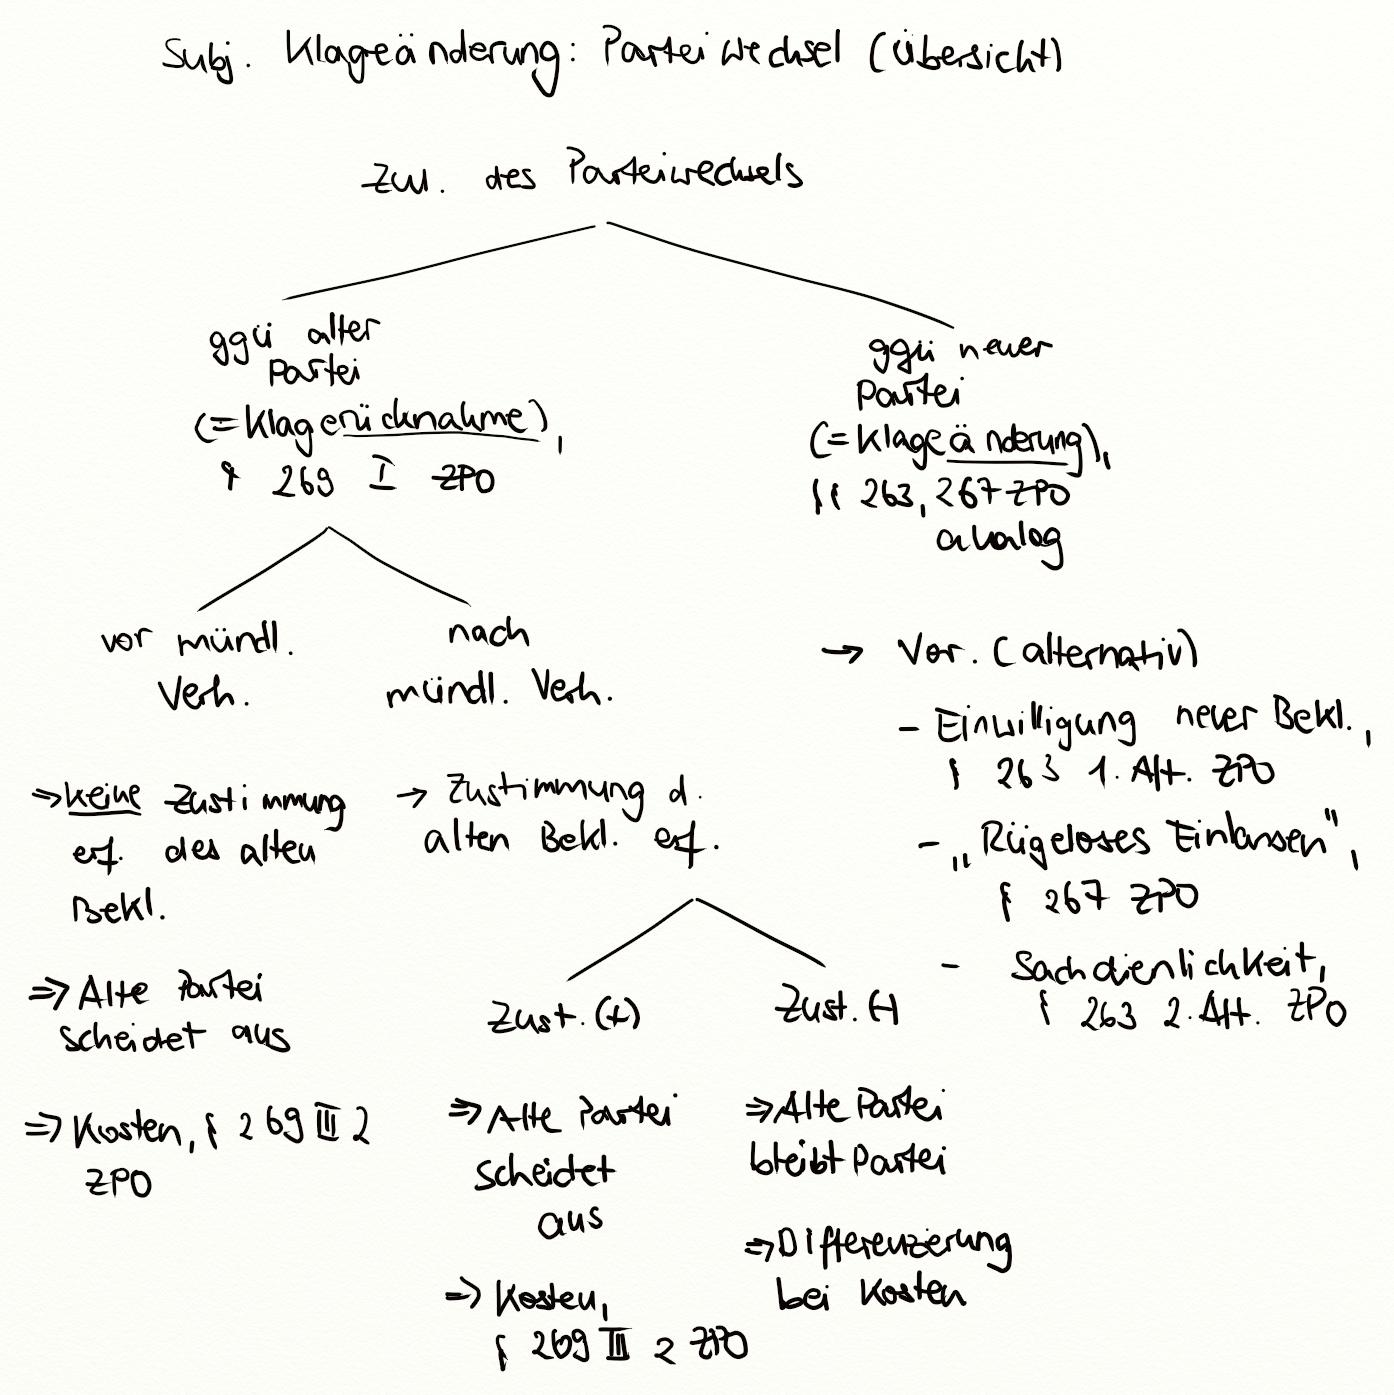 Subj. Klageänderung: Parteiwechsel (Übersicht)
Zul. des Parteiwechsels
ggü alter
Partei
(=Klagerücknahme),
§ 269 I ZPO
ggü neuer
Partei
(=Klageänderung),
§§ 263, 267 ZPO
analog
vor mündl.
Verh.
nach
mündl. Verh.
⇒ keine Zustimmung
erf. des alten
Bekl.
⇒ Alte Partei
scheidet aus
⇒ Kosten, § 269 III 2
ZPO
→ Zustimmung d.
alten Bekl. erf.
Zust. (+)
⇒ Alte Partei
scheidet
aus
⇒ Kosten,
§ 269 III 2 ZPO
Zust. (-)
⇒ Alte Partei
bleibt Partei
⇒ Differenzierung
bei Kosten
→ Vor. (alternativ)
- Einwilligung neuer Bekl.,
§ 263 1. Alt. ZPO
- „Rügeloses Einlassen",
§ 267 ZPO
- Sachdienlichkeit,
§ 263 2. Alt. ZPO